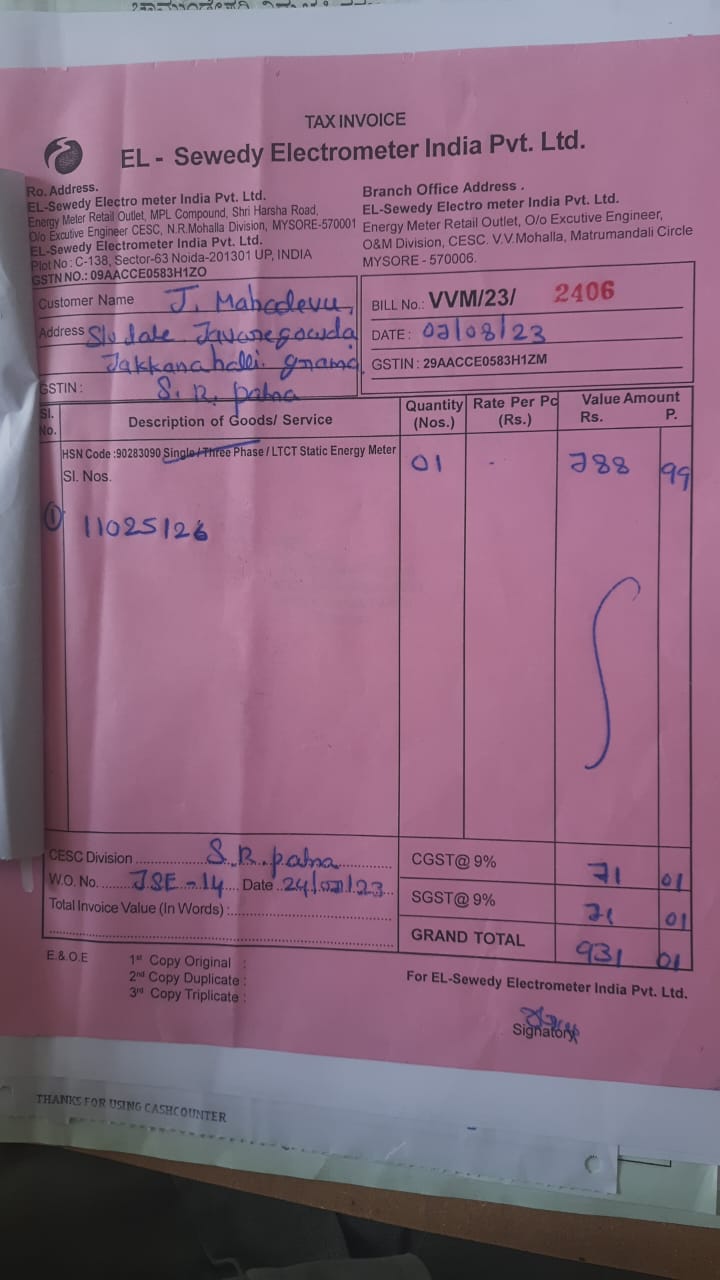 TAX INVOICE
EL - Sewedy Electrometer India Pvt. Ltd.
Ro. Address.
EL-Sewedy Electro meter India Pvt. Ltd.
Energy Meter Retail Outlet, MPL Compound, Shri Harsha Road,
O/o Excutive Engineer CESC, N.R.Mohalla Division, MYSORE-570001
EL-Sewedy Electrometer India Pvt. Ltd.
Plot No : C-138, Sector-63 Noida-201301 UP, INDIA
GSTN NO.: 09AACCE0583H1ZO
Branch Office Address .
EL-Sewedy Electro meter India Pvt. Ltd.
Energy Meter Retail Outlet, O/o Excutive Engineer,
O&M Division, CESC. V.V.Mohalla, Matrumandali Circle
MYSORE - 570006.
Customer Name J. Mahadevu,
Address S/o date Javaregowda
Jakkanahalli grama
GSTIN : S. R. patna
BILL No.: VVM/23/ 2406
DATE : 07/08/23
GSTIN : 29AACCE0583H1ZM
Sl. No. Description of Goods/ Service Quantity (Nos.) Rate Per Pc (Rs.) Value Amount Rs. P.
HSN Code :90283090 Single / Three Phase / LTCT Static Energy Meter 01 - 788 99
Sl. Nos.
① 11025126
CESC Division S. R. patna
W.O. No. JSE - 14 Date 24/07/23
Total Invoice Value (In Words) :
CGST@ 9% 71 01
SGST@ 9% 71 01
GRAND TOTAL 931 01
E.& O.E 1st Copy Original :
2nd Copy Duplicate :
3rd Copy Triplicate :
For EL-Sewedy Electrometer India Pvt. Ltd.
Signatory
THANKS FOR USING CASHCOUNTER